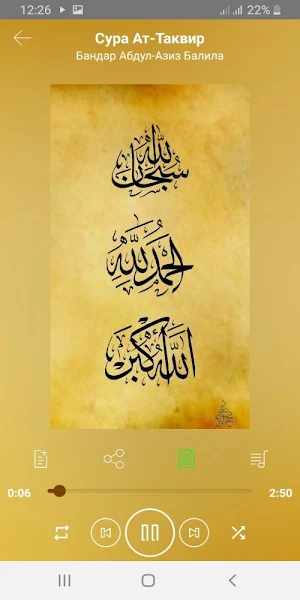 12:26
22%
Сура Ат-Таквир
Бандар Абдул-Азиз Балила
سُبْحَانَ اللّٰه
الحَمْدُ لِلّٰه
اللّٰهُ أَكْبَر
0:06
2:50